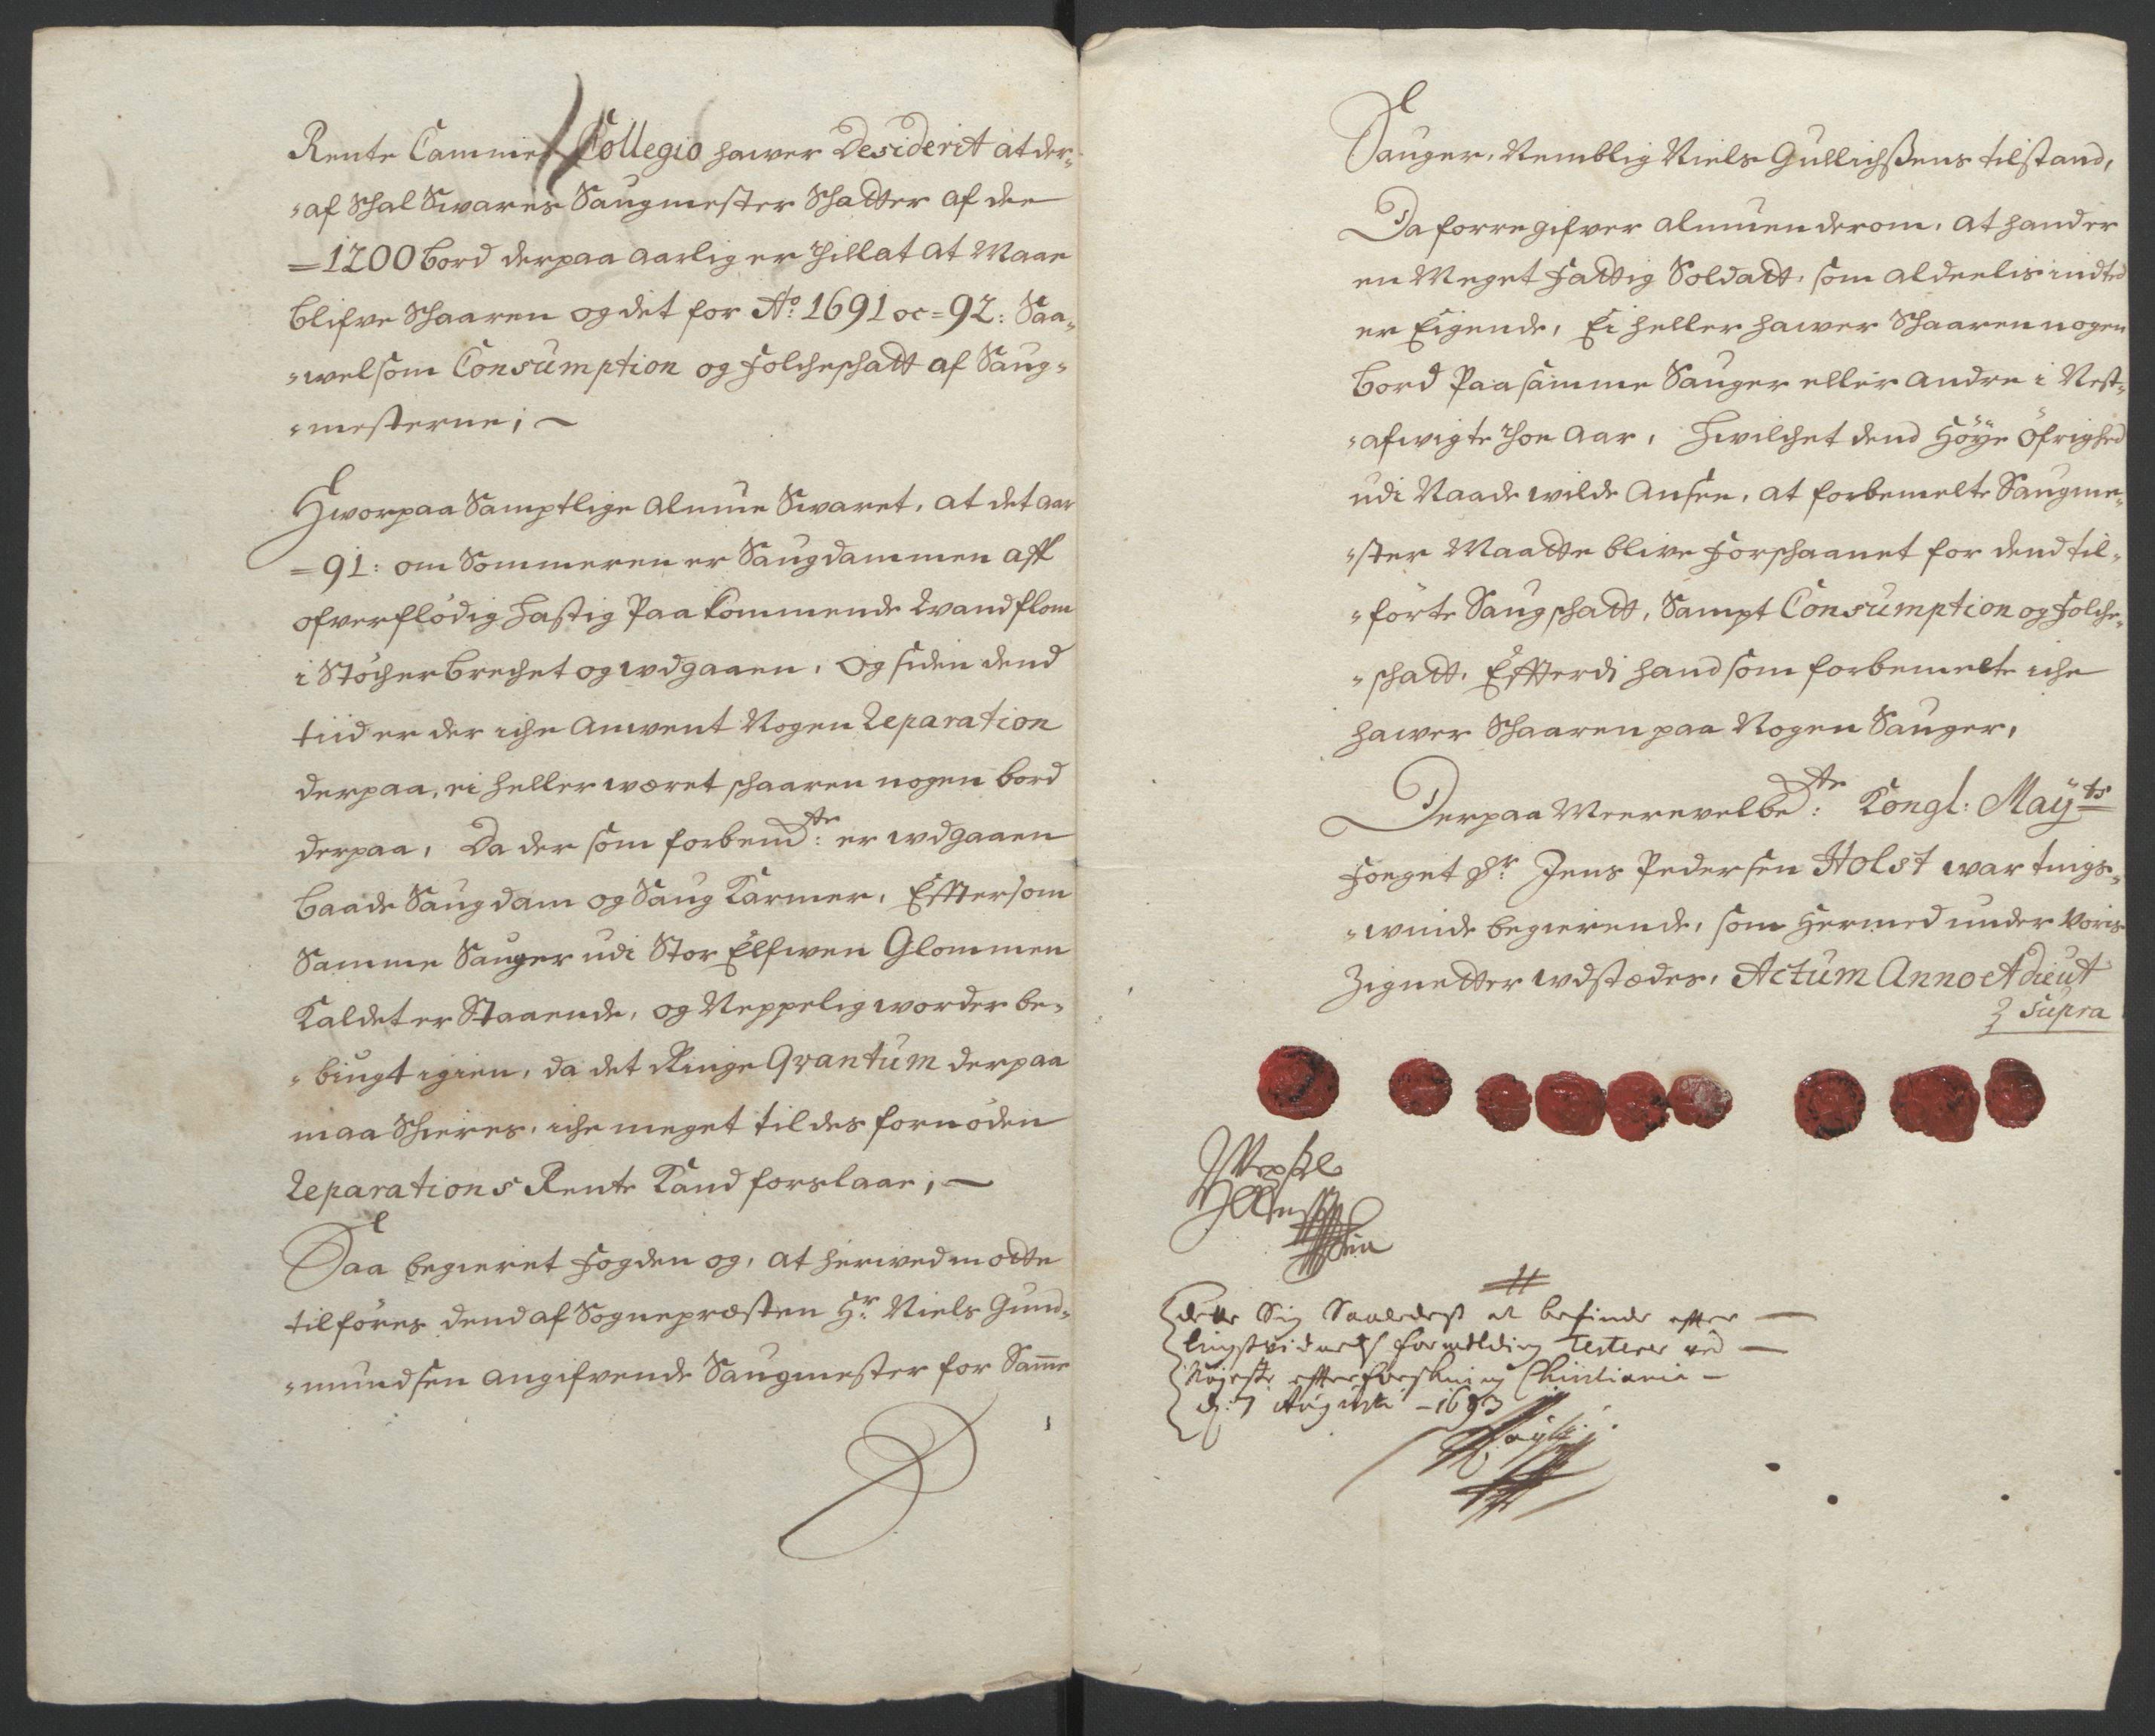 Rente Cammer Collegio hawer Desiderit at der-
-af Schal Swares Saugmester Schatter af de
=1200 bord derpaa aarlig er thillat at Maae
blifve Schaaren og det for Ao: 1691 oc =92: Saa-
-wel som Consumption og Folcheschatt af Saug-
-mesterne; -
Hworpaa Samptlige Almue Swaret, at det aar
=91: om Sommeren er Saugdammen aff
ofverflödig hastig Paakommende Wandflom
i Støcher brechet og wdgaaen, og siden dend
tiid er der iche Anwent Nogen Reparation
derpaa, ei heller været schaaren nogen bord
derpaa, Da der som forbemdte: er wdgaaen
baade Saugdam og Saug Karmer, Efftersom
Samme Sauger udi Stor Elfwen Glommen
Kaldet er Staaende, og Neppelig worder be-
-biugt igien, da det Ringe Qvantum derpaa
maa Schieres, iche meget til des fornöden
Reparations Rente Kand forslaae; -
Saa begieret Fogden og, at herwed motte
tilföres dend af Sognepræsten Hr: Niels Gund-
-mundsen angifvende Saugmester for Samme
Sauger, Nemblig Niels Gullichssens tilstand,
Da forregifver almuen derom, at hand er
en Meget Fattig Soldatt, som aldeelis indted
er Eigende, Ei heller hawer Schaaren nogen
bord Paa samme Sauger eller andre i Nest-
-afwigte thoe Aar, Hwilchet dend Höye Öfrighed
udi Naade wilde Ansee, at forbemelte Saugme-
-ster Maatte blive Forschaanet for dend til-
-förte Saugschatt, Sampt Consumption og Folche-
-schatt, Effterdj hand som forbemelte iche
hawer Schaaren paa Nogen Sauger,
Derpaa Meerevelbete: Kongl: Mayts
Foeget Sr: Jens Pedersen Holst war tings-
-winde begierende, som Hermed under Voris
Zignetter wdstædes, Actum Anno et die ut
supra
Dette Sig Saaledest at befinde efter
tingsvidnets formelding Testerer ved
Nöjeste efterforskning Christiania
d: 7 Augusti 1693